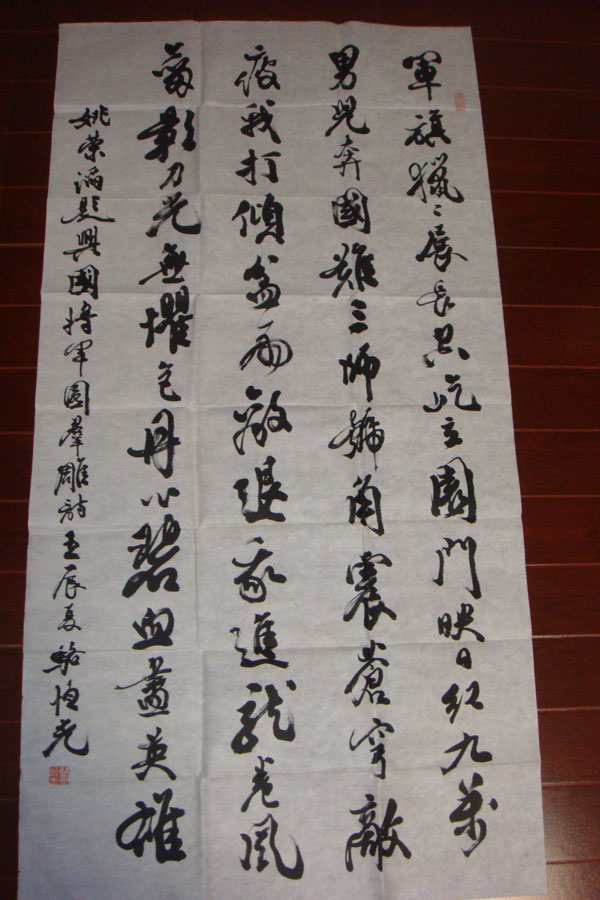 軍旗獵〻展長空屹立園門映日紅九萬
男兒奔國難三師號角震蒼穹敵
疲我打傾盆雨敵退我進龍卷風
影刀光無懼色丹心碧血盡英雄
姚榮滔題興國將軍園羣雕詩壬辰夏駱恒光